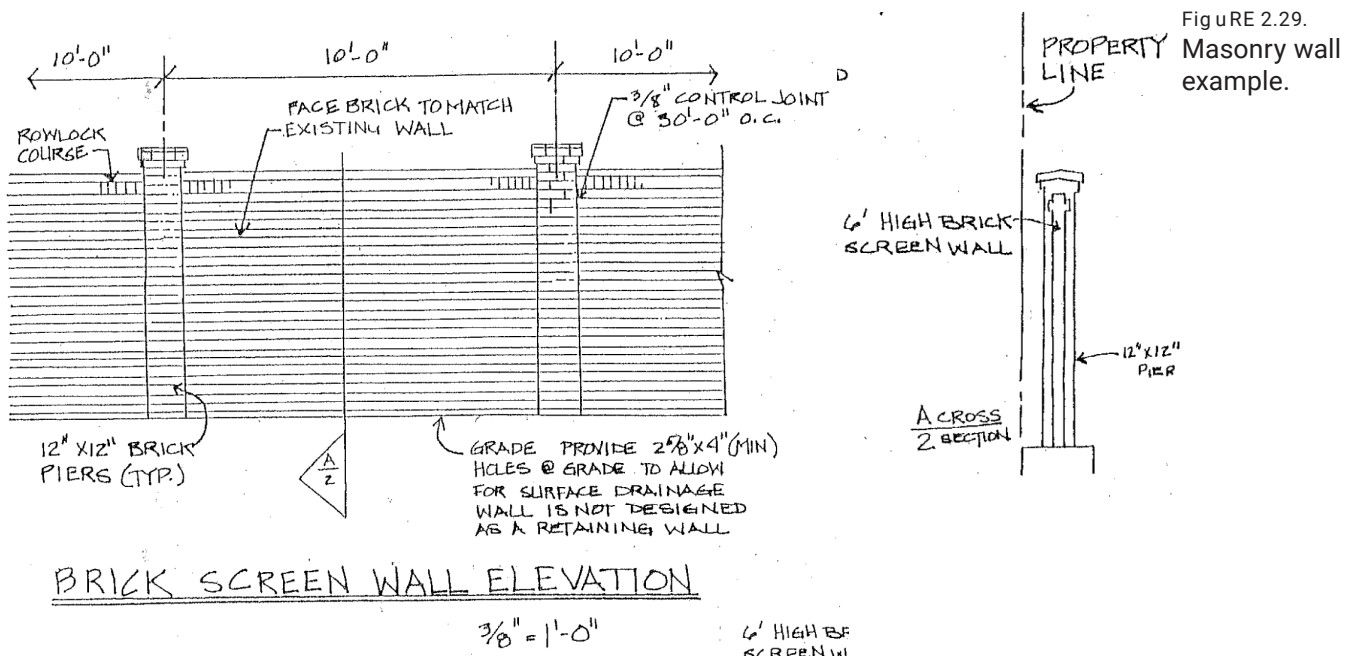 10'-0"
10'-0"
10'-0"
FACE BRICK TO MATCH
EXISTING WALL
ROWLOCK
COURSE
3/8" CONTROL JOINT
@ 30'-0" O.C.
12" X12" BRICK
PIERS (TYP.)
A
2
GRADE PROVIDE 2⅝"X4"(MIN)
HOLES @ GRADE TO ALLOW
FOR SURFACE DRAINAGE
WALL IS NOT DESIGNED
AS A RETAINING WALL
BRICK SCREEN WALL ELEVATION
3/8" = 1'-0"
6' HIGH BR
SCREEN W
D
PROPERTY
LINE
6' HIGH BRICK
SCREEN WALL
12"X12"
PIER
A CROSS
2 SECTION
FiguRE 2.29.
Masonry wall
example.